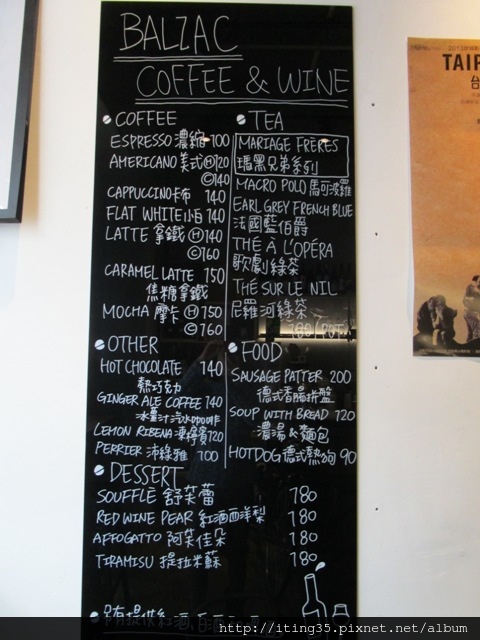 BALZAC
COFFEE & WINE
COFFEE
ESPRESSO 濃縮 100
AMERICANO 美式 H 120
C 140
CAPPUCCINO 卡布 140
FLAT WHITE 小白 140
LATTE 拿鐵 H 140
C 160
CARAMEL LATTE 150
焦糖拿鐵
MOCHA 摩卡 H 150
C 160
TEA
MARIAGE FRÈRES
瑪黑兄弟系列
MACRO POLO 馬可波羅
EARL GREY FRENCH BLUE
法國藍伯爵
THÉ À L'OPÉRA
歌劇綠茶
THÉ SUR LE NIL
尼羅河綠茶
180/POT
OTHER
HOT CHOCOLATE 140
熱巧克力
GINGER ALE COFFEE 140
冰薑汁汽水咖啡
LEMON RIBENA 凍檸賓 120
PERRIER 沛綠雅 100
FOOD
SAUSAGE PATTER 200
德式香腸拼盤
SOUP WITH BREAD 120
濃湯 & 麵包
HOTDOG 德式熱狗 90
DESSERT
SOUFFLÈ 舒芙蕾 180
RED WINE PEAR 紅酒西洋梨 180
AFFOGATTO 阿芙佳朵 180
TIRAMISU 提拉米蘇 180
另有提供紅酒,白酒
TAIP
台
http://iting35.pixnet.net/album